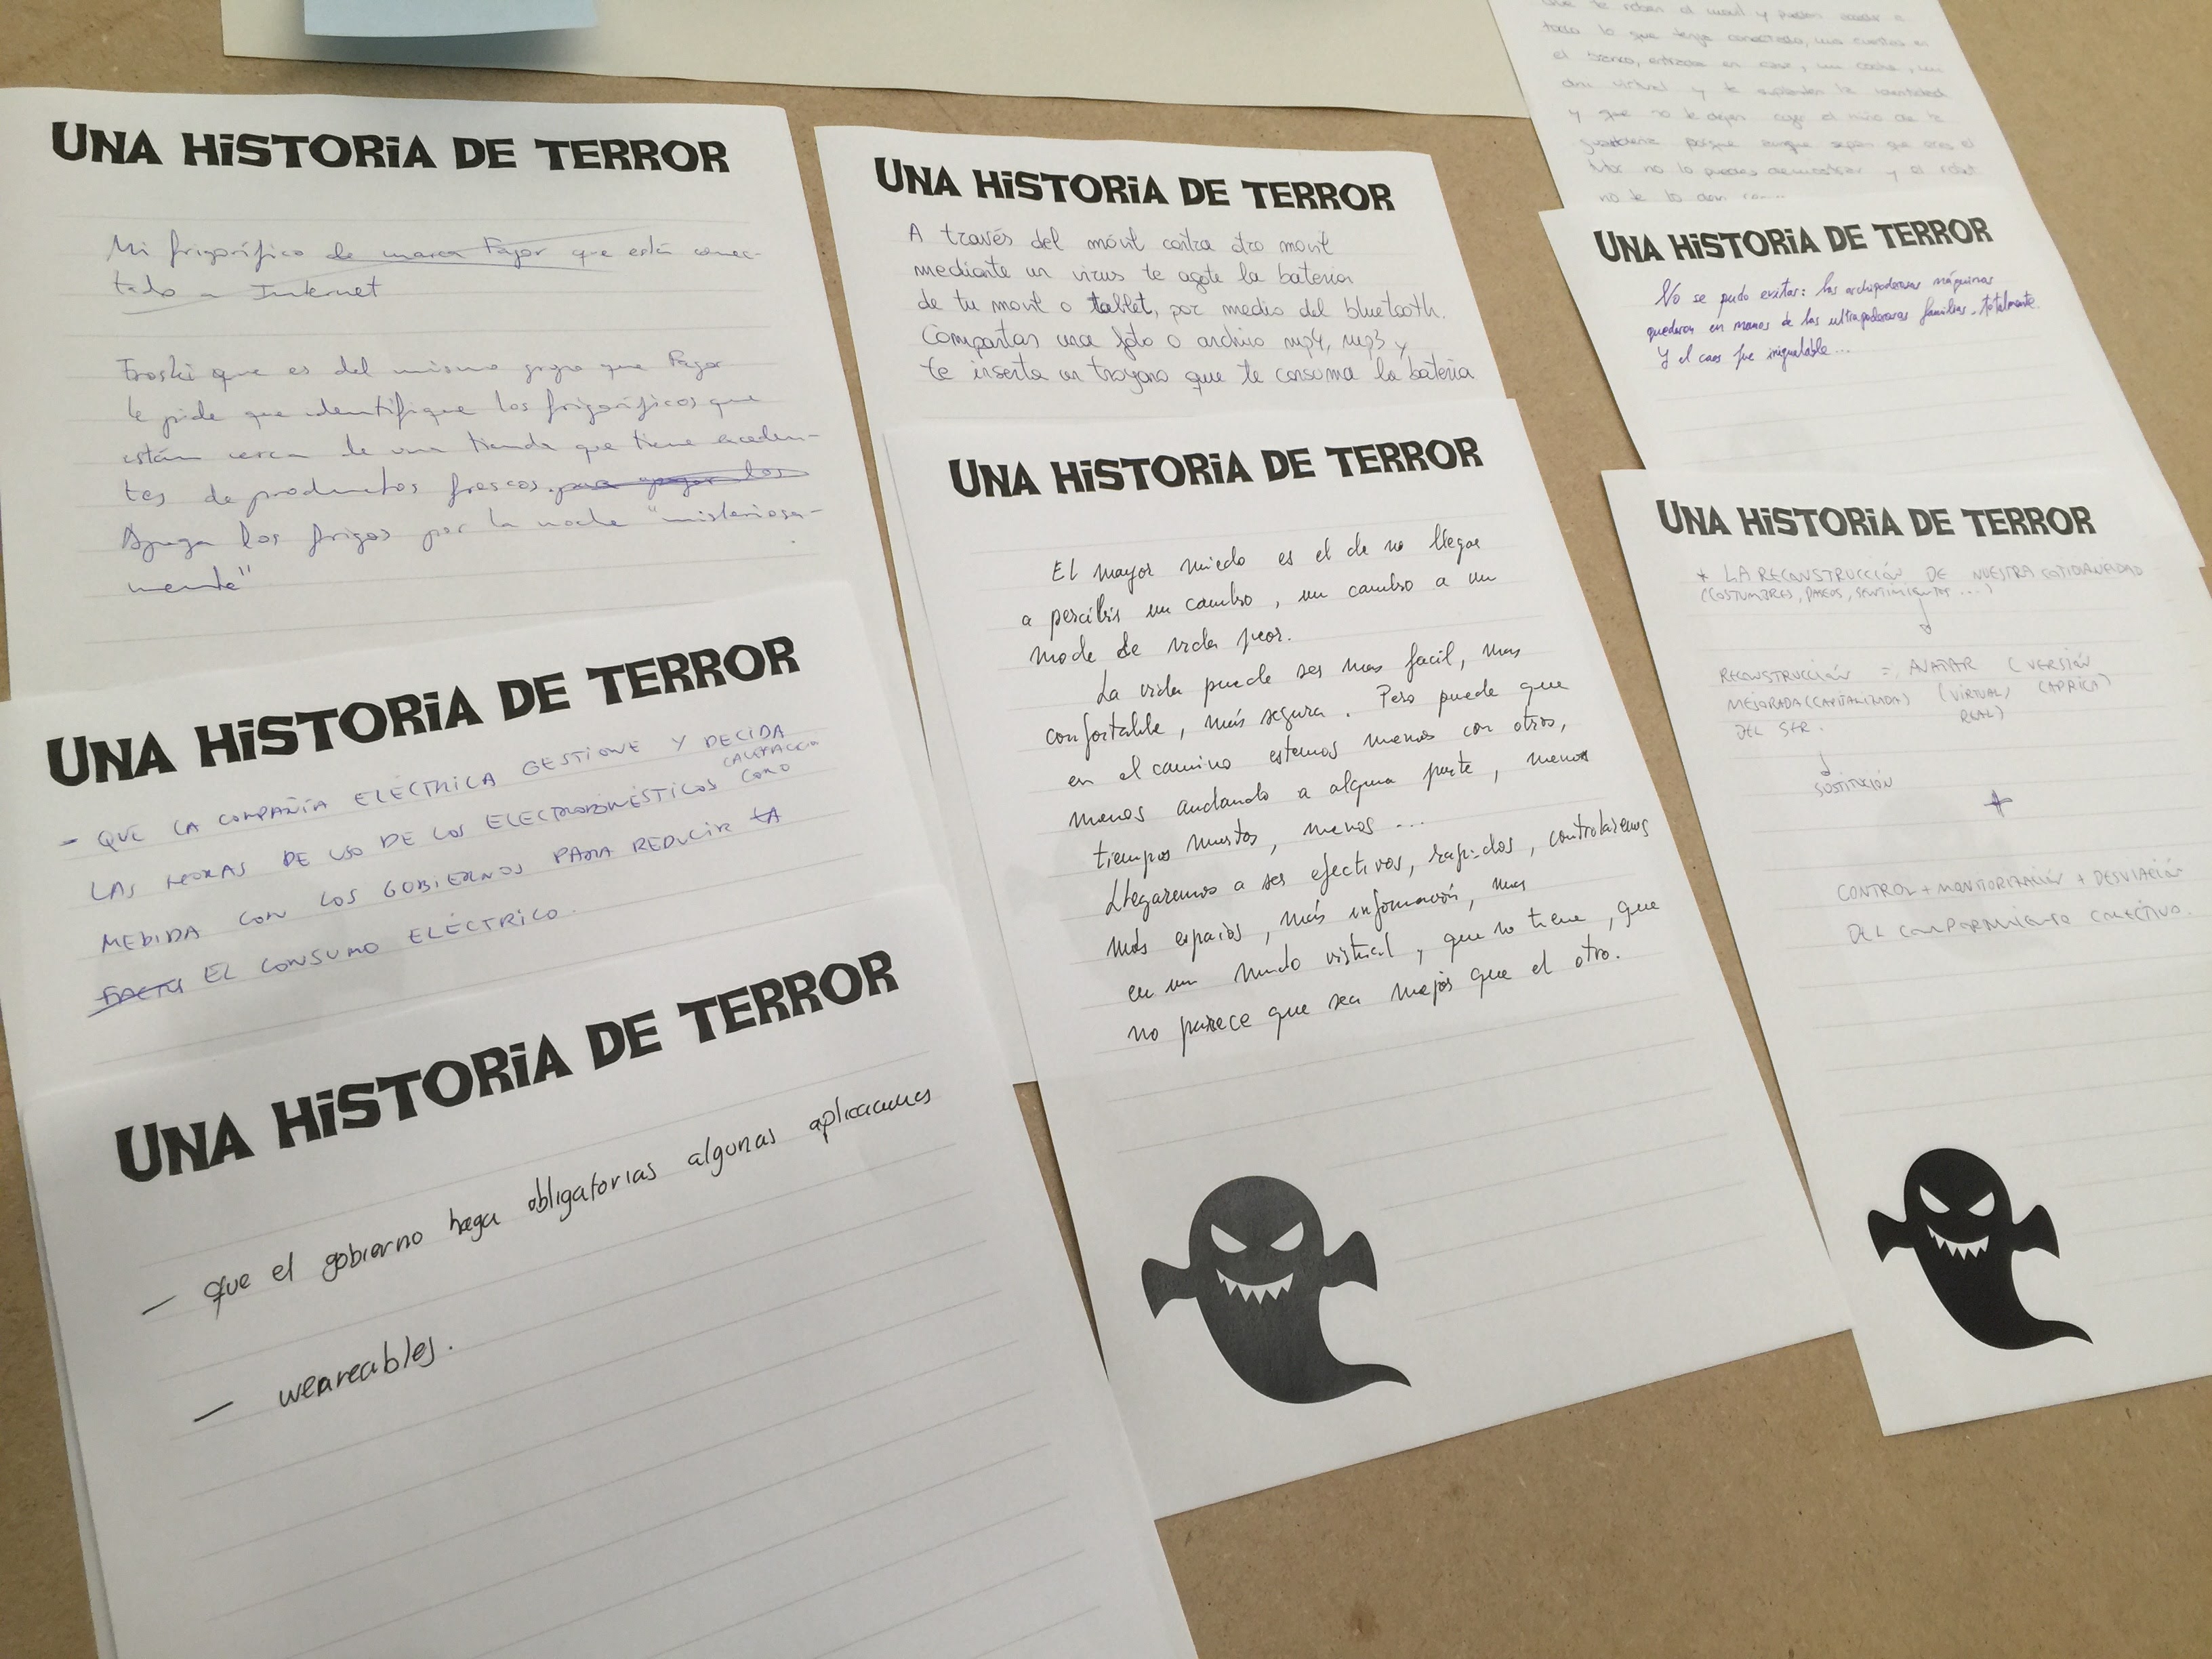 UNA HiSTORiA DE TERROR
Mi frigorífico de marca Fagor que está conec-
tado a Internet
Eroski que es del mismo grupo que Fagor
le pide que identifique los frigoríficos que
están cerca de una tienda que tiene exceden-
tes de productos frescos. para apagar los
Apaga los frigos por la noche "misteriosa-
mente"
UNA HiSTORiA DE TERROR
- QUE LA COMPAÑÍA ELÉCTRICA GESTIONE Y DECIDA
LAS HORAS DE USO DE LOS ELECTRODOMÉSTICOS COMO CALEFACCIÓN
MEDIDA CON LOS GOBIERNOS PARA REDUCIR LA
EL CONSUMO ELÉCTRICO.
UNA HiSTORiA DE TERROR
— que el gobierno haga obligatorias algunas aplicaciones
— weareables.
UNA HiSTORiA DE TERROR
A través del móvil contra otro movil
mediante un virus te agote la bateria
de tu movil o tablet, por medio del bluetooth.
Compartas una foto o archivo mp4, mp3 y
te inserta un troyano que te consuma la bateria
UNA HiSTORiA DE TERROR
El mayor miedo es el de no llegar
a percibir un cambio, un cambio a un
modo de vida peor.
La vida puede ser mas facil, mas
confortable, más segura. Pero puede que
en el camino estemos menos con otros,
menos andando a alguna parte, menos
tiempos muertos, menos ...
Llegaremos a ser efectivos, rapidos, controlaremos
más espacios, más información, mas
en un mundo virtual, que no tiene, que
no parece que sea mejor que el otro.
que te roben el movil y puedan acceder a
todo lo que tenga conectado, tus cuentas en
el banco, entrada en casa, tu coche, tu
dni virtual y te suplanten la identidad
y que no te dejen coger el niño de la
guarderia porque aunque sepan que eres el
no lo puedes demostrar y el robot
no te lo dan
UNA HiSTORiA DE TERROR
No se pudo evitar: las archipoderosas máquinas
quedaron en manos de las ultrapoderosas familias, totalmente.
Y el caos fue inigualable...
UNA HiSTORiA DE TERROR
* LA RECONSTRUCCIÓN DE NUESTRA COTIDIANEIDAD
(COSTUMBRES, PASEOS, SENTIMIENTOS ...)
RECONSTRUCCIÓN = AVATAR (VERSIÓN
MEJORADA (CAPITALIZADA) (VIRTUAL)
DEL SER. REAL)
SUSTITUCIÓN
+
CONTROL + MONITORIZACIÓN + DESVIACIÓN
DEL COMPORTAMIENTO COLECTIVO.